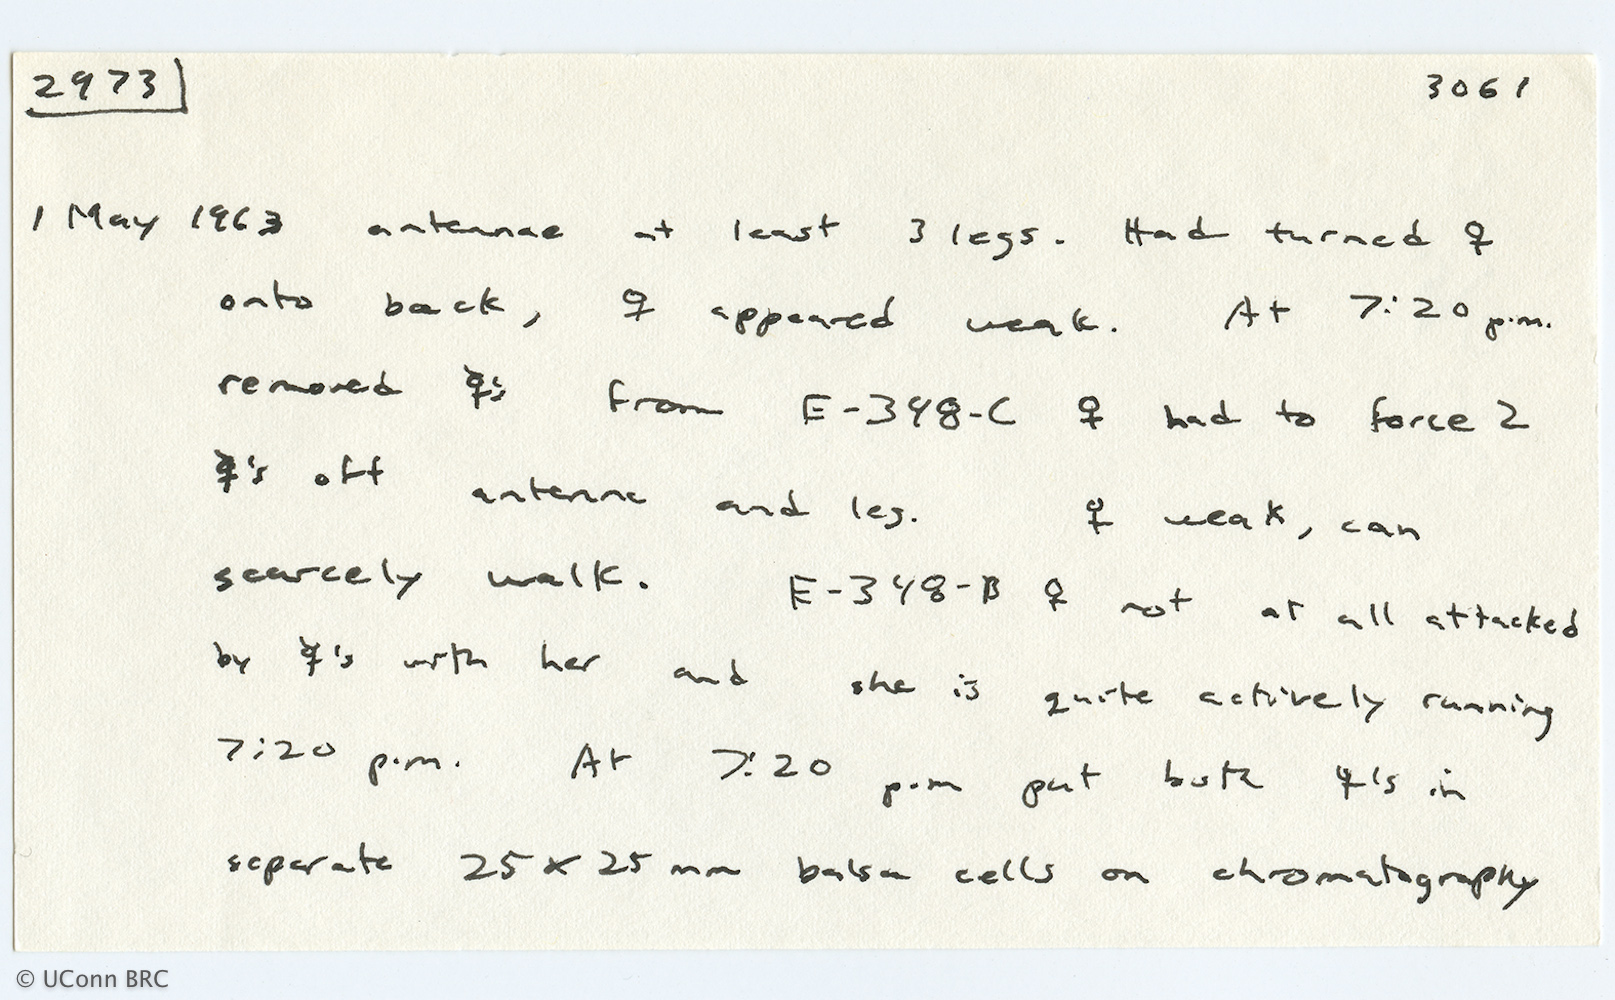 2973 3061
1 May 1963 antennae at least 3 legs. Had turned ♀
onto back, ♀ appeared weak. At 7:20 p.m.
removed ☿'s from E-348-C ♀ had to force 2
☿'s off antenna and leg. ♀ weak, can
scarcely walk. E-348-B ♀ not at all attacked
by ☿'s with her and she is quite actively running
7:20 p.m. At 7:20 p.m put both ♀'s in
separate 25 x 25 mm balsa cells on chromatography
© UConn BRC